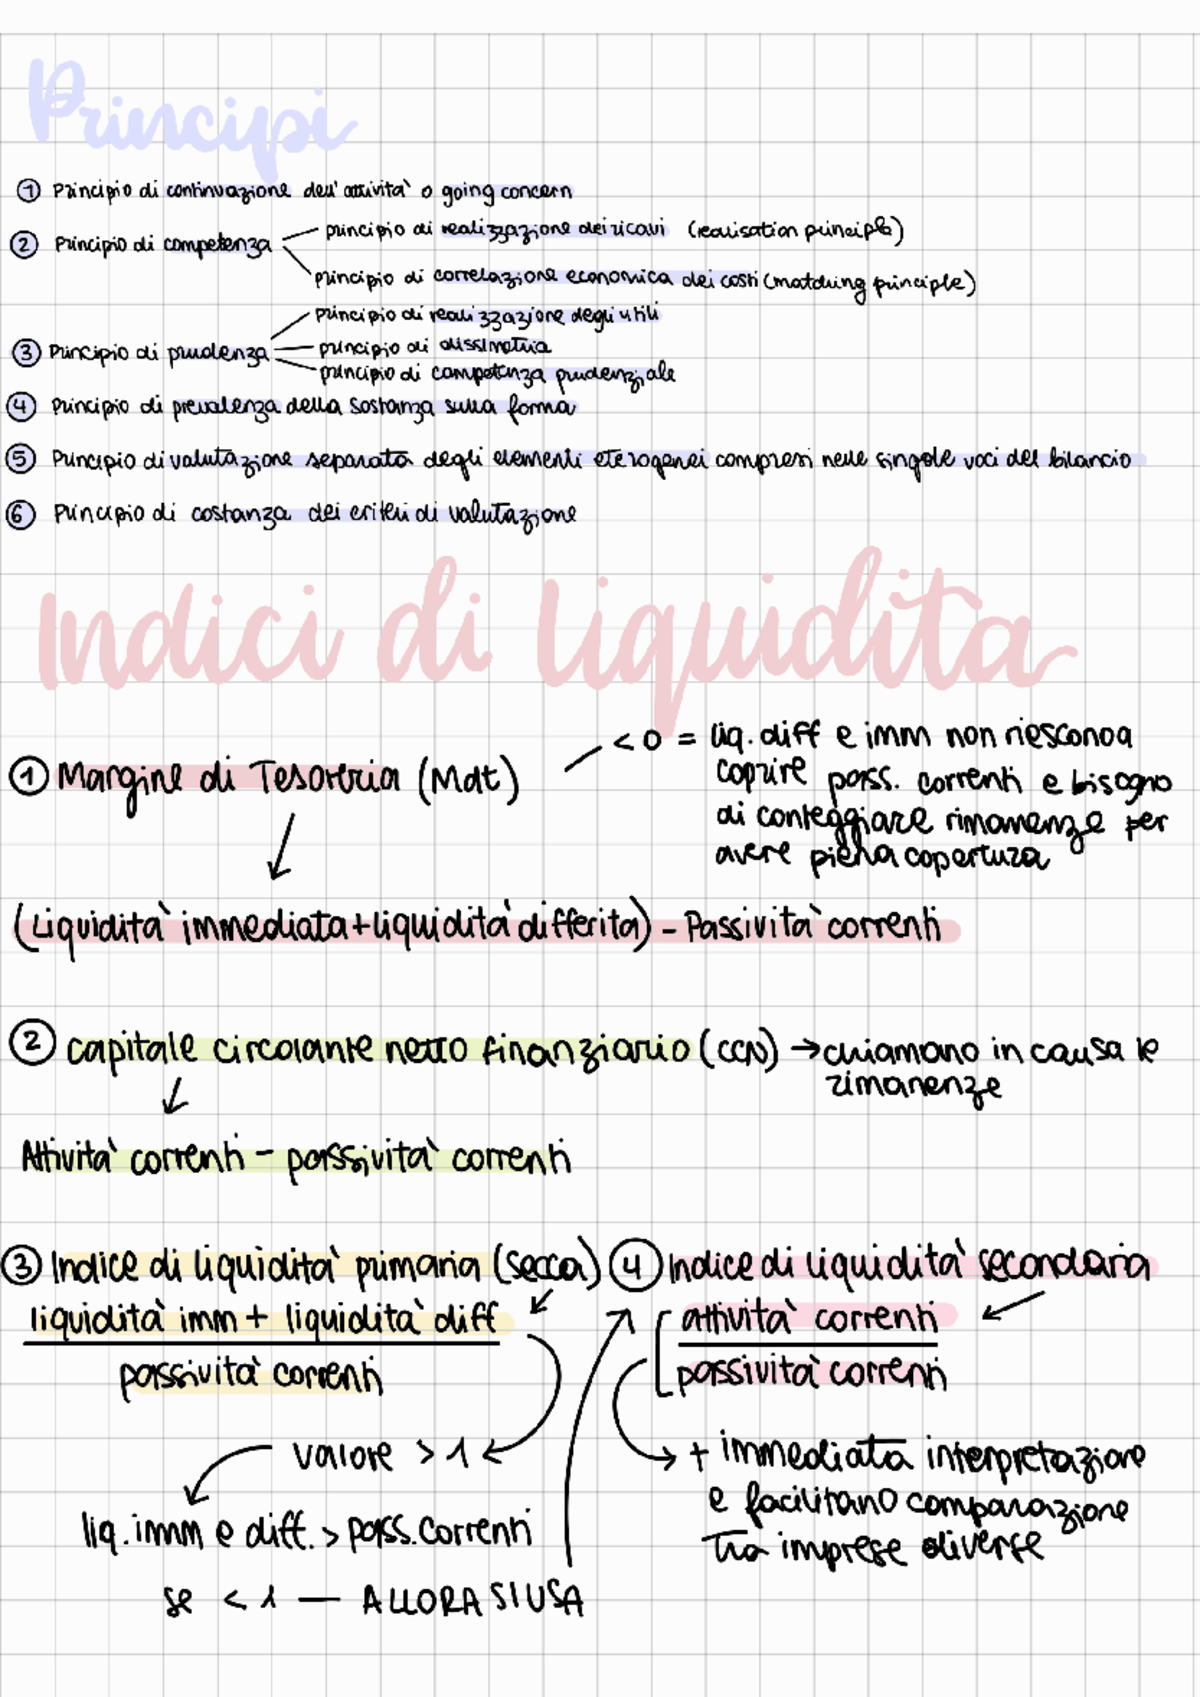 Principi
① Principio di continuazione dell'attività o going concern
② Principio di competenza
principio di realizzazione dei ricavi (realisation principle)
principio di correlazione economica dei costi (matching principle)
③ Principio di prudenza
principio di realizzazione degli utili
principio di dissimetria
principio di competenza prudenziale
④ Principio di prevalenza della sostanza sulla forma
⑤ Principio di valutazione separata degli elementi eterogenei compresi nelle singole voci del bilancio
⑥ Principio di costanza dei criteri di valutazione
Indici di liquidita
① Margine di Tesoreria (Mdt)
< 0 = liq. diff e imm non riescono a
coprire pass. correnti e bisogno
di conteggiare rimanenze per
avere piena copertura
(Liquidità immediata + liquidità differita) - Passività correnti
② capitale circolante netto finanziario (CCN) → chiamano in causa le
rimanenze
Attività correnti - passività correnti
③ Indice di liquidità primaria (secca)
liquidità imm + liquidità diff
passività correnti
valore > 1
liq. imm e diff. > pass. correnti
se < 1 — ALLORA SI USA
④ Indice di liquidità secondaria
attività correnti
passività correnti
+ immediata interpretazione
e facilitano comparazione
tra imprese diverse